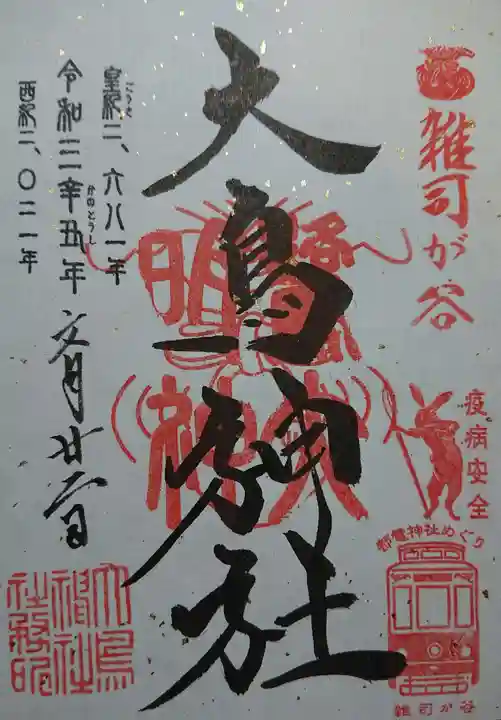 雑司が谷
疫病安全
都電神社めぐり
雑司が谷
大鳥神社
鷺大明神
皇紀二、六八一年
こうき
令和三辛丑年 文月廿二日
かのとうし
西紀二、〇二一年
大鳥神社社務所